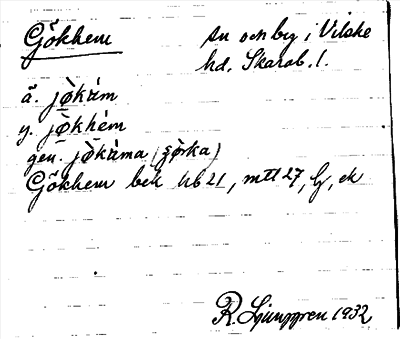 Gökhem
sn och by i Vilske
hd. Skarab. l.
ä. jø̀kàm
y. jø̀khèm
gen. jø̀kàma (gø̀rka)
Gökhem bek hb 21, mtl 27, lj, ek
R. Ljunggren 1932